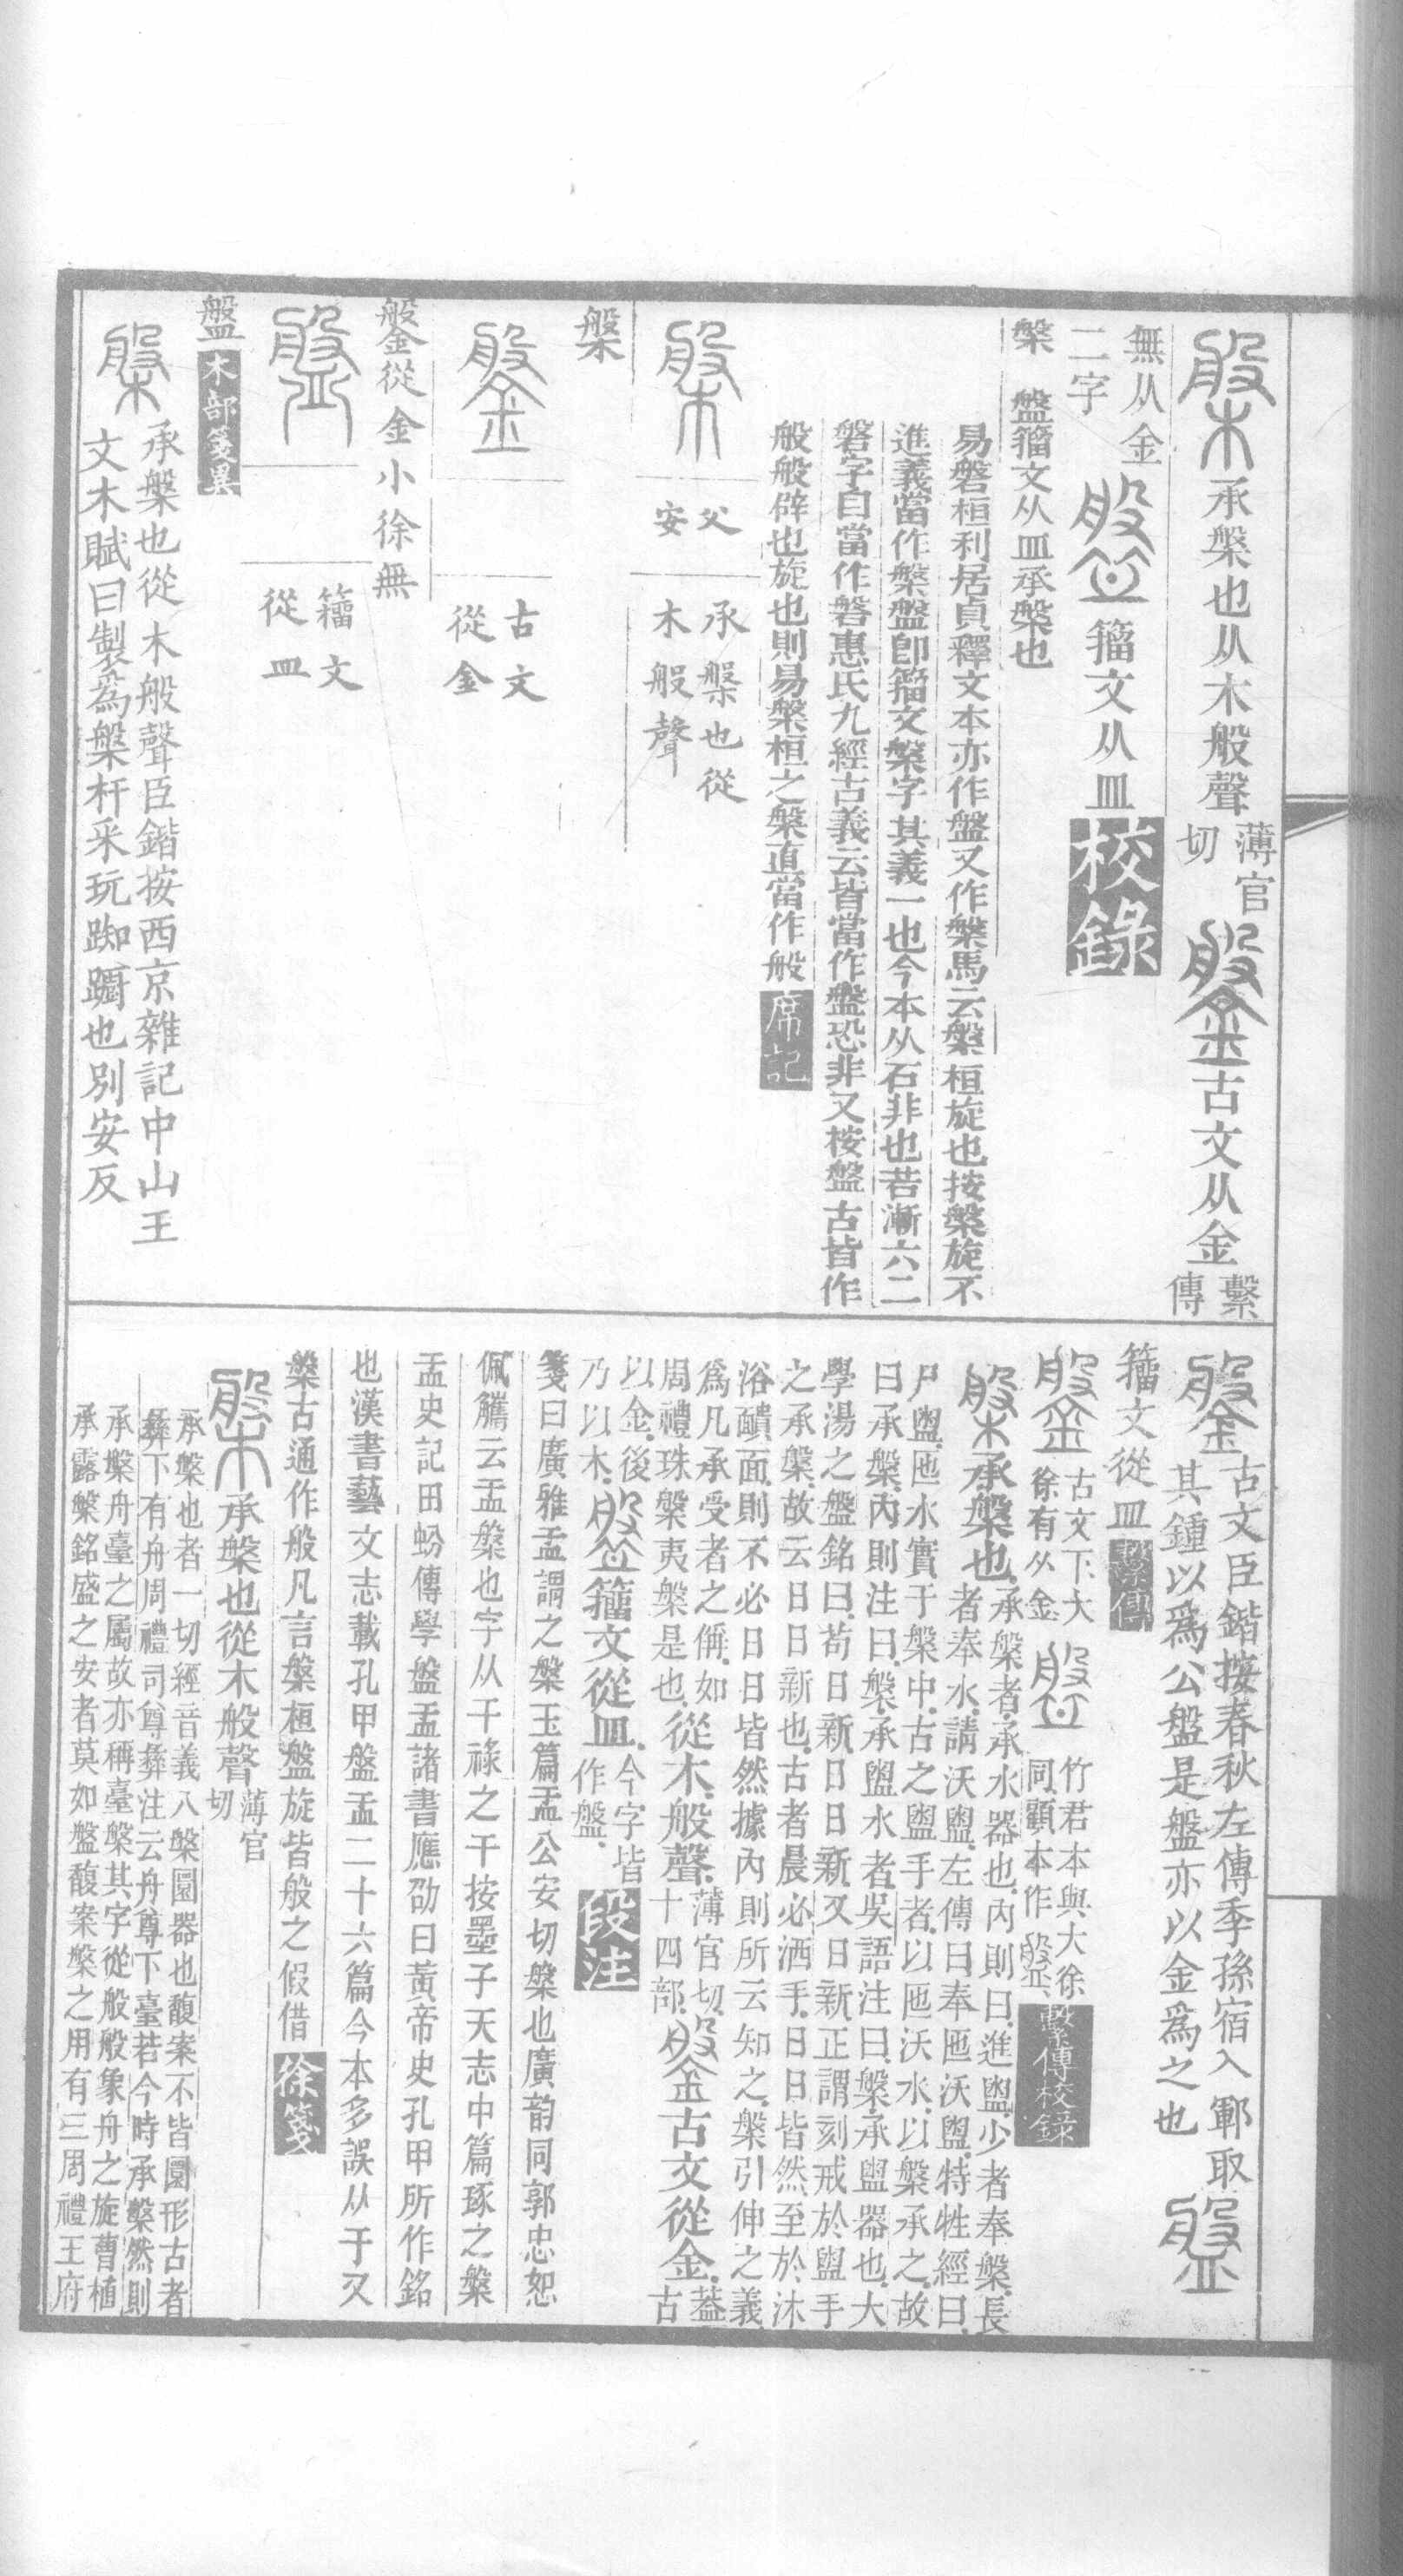 槃承槃也从木般聲薄官切鎜古文从金繫傳
無从金二字盤籀文从皿校錄
槃 盤籀文从皿承槃也
易磐桓利居貞釋文本亦作盤又作槃馬云槃桓旋也按槃旋不
進義當作槃盤卽籀文槃字其義一也今本从石非也若漸六二
磐字自當作磐惠氏九經古義云皆當作盤恐非又桉盤古皆作
般般辟也旋也則易槃桓之槃直當作般席記
槃父安承槃也從木般聲
槃
鎜古文從金
鎜從金小徐無
盤籀文從皿
盤木部箋異
槃承槃也從木般聲臣鍇按西京雜記中山王
文木賦曰製爲槃杅采玩踟躕也別安反
鎜古文臣鍇按春秋左傳季孫宿入鄆取
其鍾以爲公盤是盤亦以金爲之也盤
籀文從皿繫傳
鎜古文下大徐有从金盤竹君本與大徐同顧本作盤繫傳校录
槃承槃也承槃者承水器也內則曰進盥少者奉槃長
者奉水請沃盥左傳曰奉匜沃盥特牲經曰
尸盥匜水實于槃中古之盥手者以匜沃水以槃承之故
曰承槃內則注曰槃承盥水者吳語注曰槃承盥器也大
學湯之盤銘曰苟日新日日新又日新正謂刻戒於盥手
之承槃故云日日新也古者晨必洒手日日皆然至於沐
浴靧面則不必日日皆然據內則所云知之槃引伸之義
爲凡承受者之偁如
周禮珠槃夷槃是也從木般聲薄官切十四部鎜古文從金葢古
以金後乃以木盤籀文從皿今字皆作盤段注
箋曰廣雅盂謂之槃玉篇盂公安切槃也廣韵同郭忠恕
佩觿云盂槃也字从干祿之干按墨子天志中篇琢之槃
盂史記田蚡傳學盤盂諸書應劭曰黃帝史孔甲所作銘
也漢書藝文志載孔甲盤盂二十六篇今本多誤从于又
槃古通作般凡言槃桓盤旋皆般之假借徐箋
槃承槃也從木般聲薄官切
承槃也者一切經音義八槃圓器也馥案不皆圓形古者
彝下有舟周禮司尊彝注云舟尊下臺若今時承槃然則
承槃舟臺之屬故亦稱臺槃其字從般般象舟之旋曹植
承露槃銘盛之安者莫如盤馥案槃之用有三周禮王府